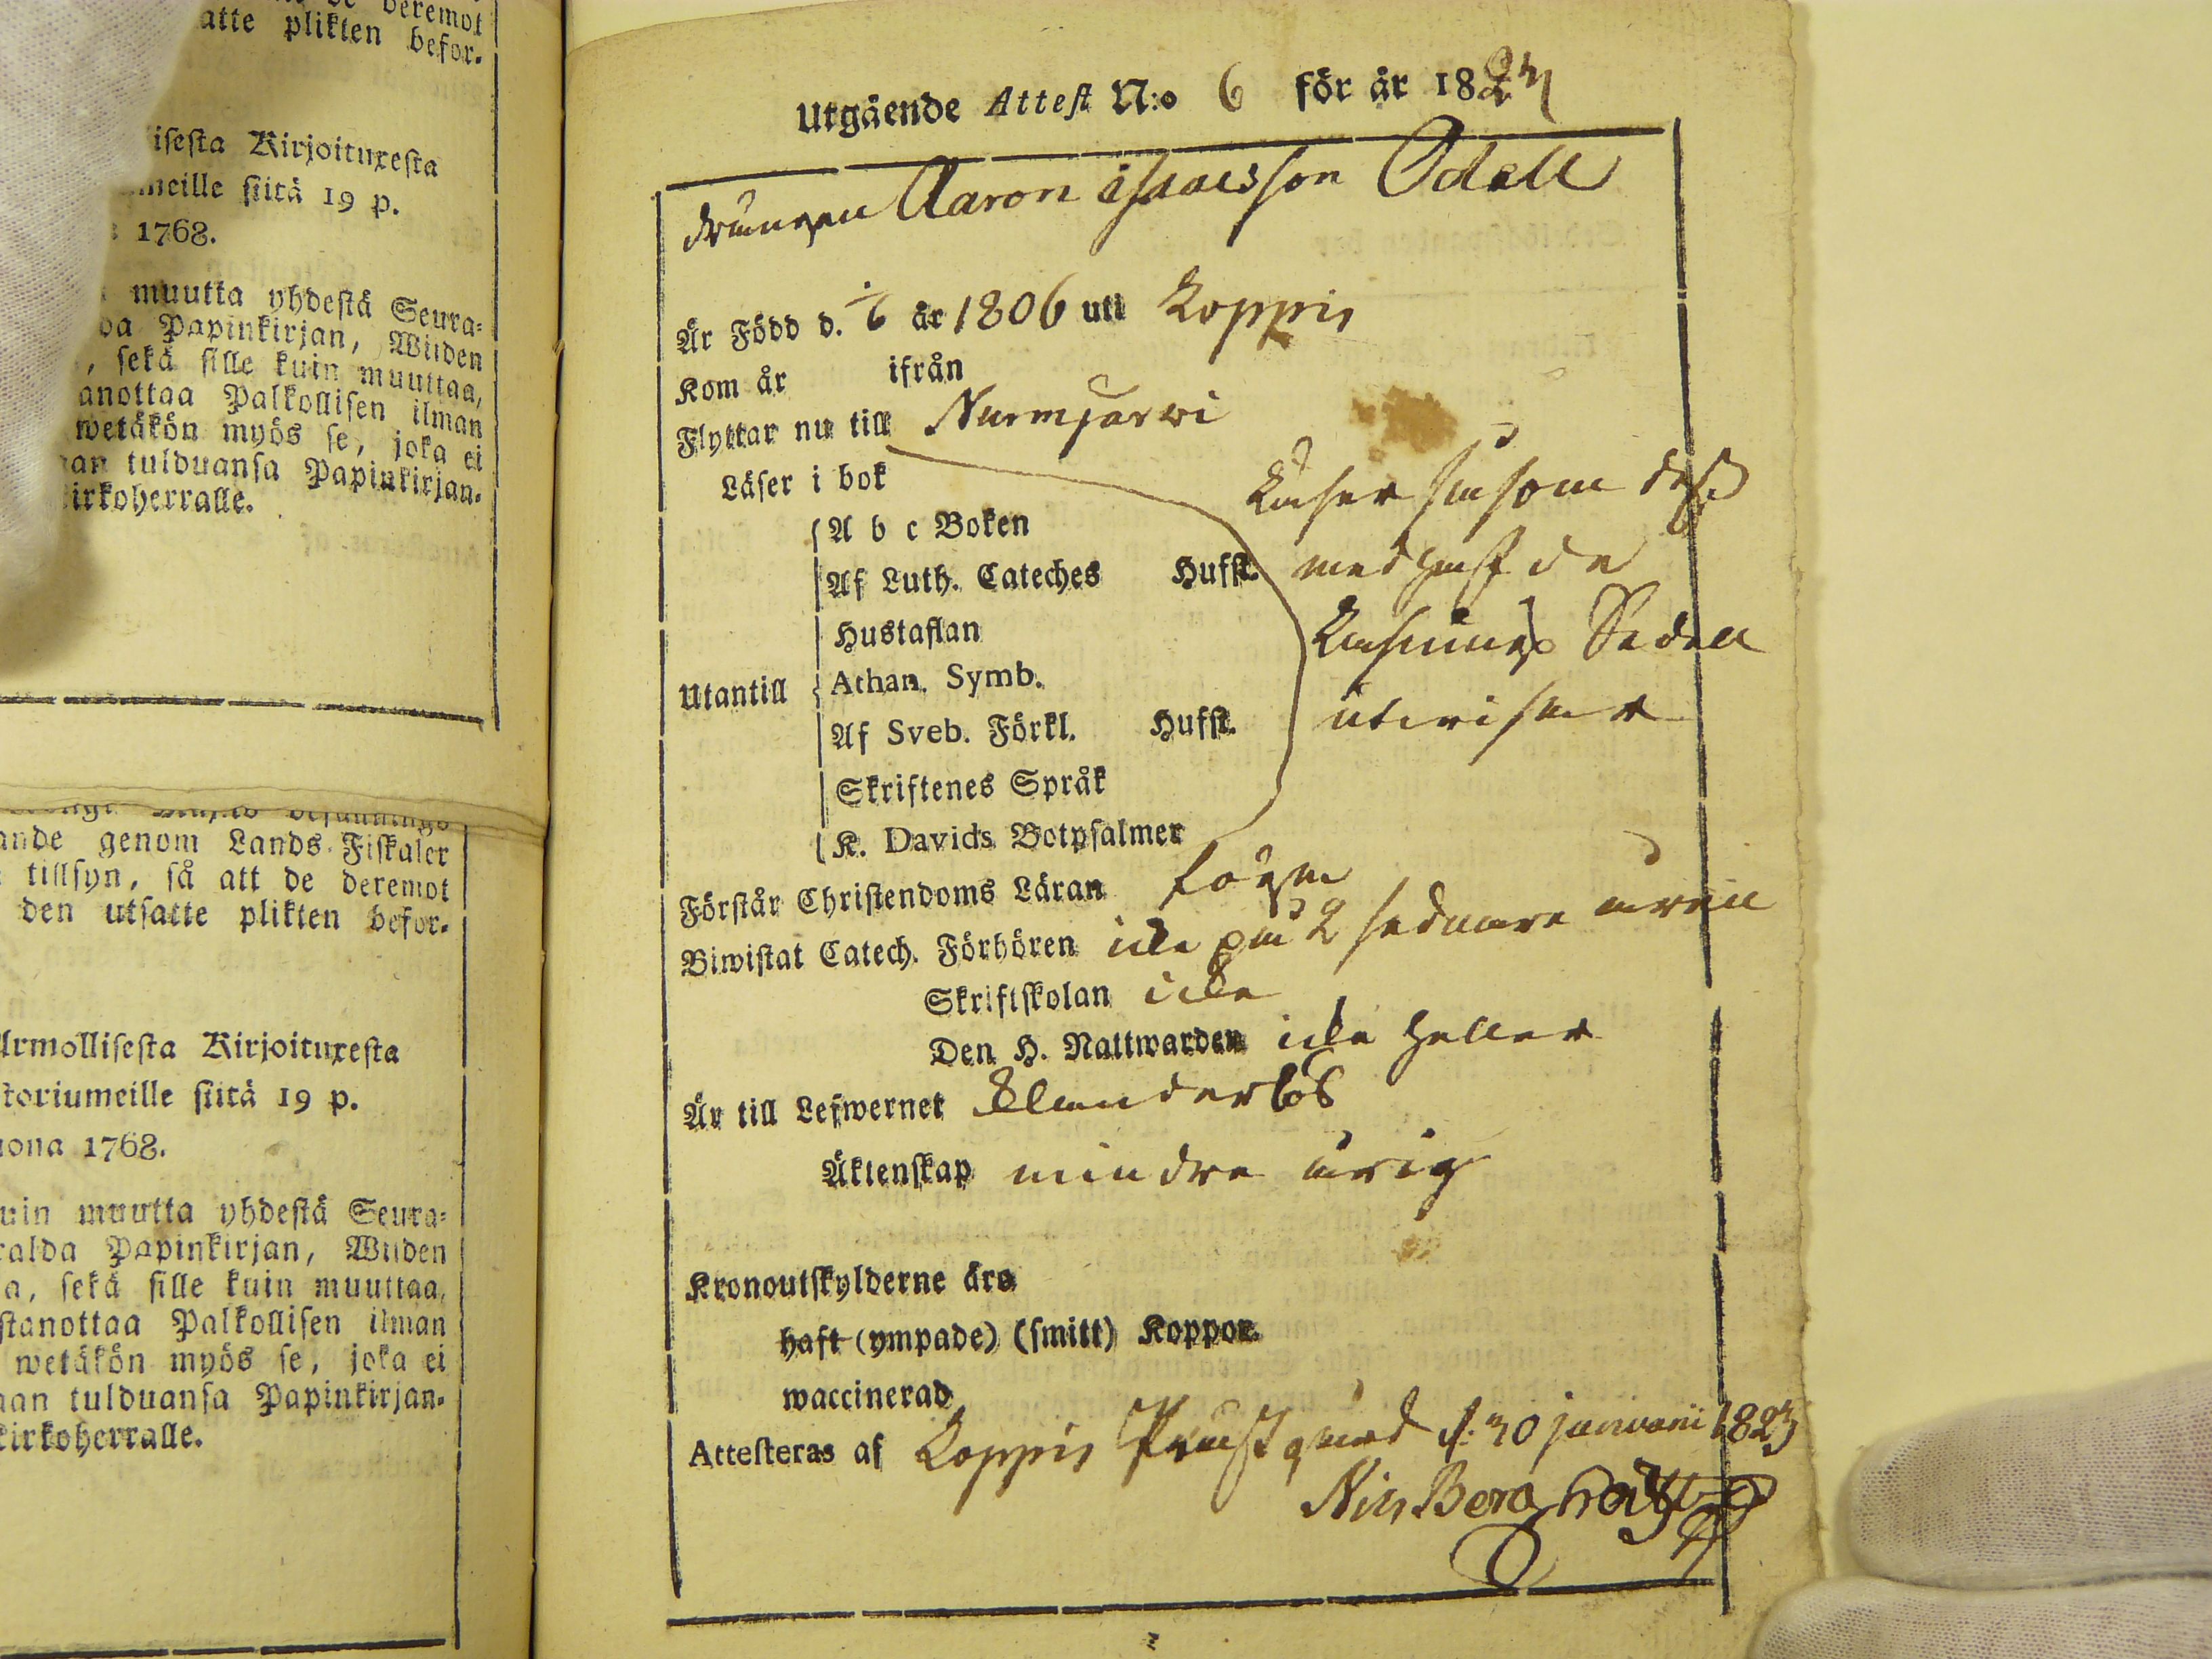 deremot
atte plikten befor-
isesta Kirjoituxesta
meille siitä 19 p.
1768.
muutta yhdestä Seura-
da Papinkirjan, Wiiden
, sekä sille kuin muuttaa,
anottaa Palkollisen ilman
wetäkön myös se, joka ei
an tulduansa Papinkirjan-
irkoherralle.
ande genom Lands Fiskaler
tillsyn, så att de deremot
den utsatte plikten befor-
Armollisesta Kirjoituxesta
storiumeille siitä 19 p.
uona 1768.
uin muutta yhdestä Seura-
ralda Papinkirjan, Wiiden
a, sekä sille kuin muuttaa,
stanottaa Palkollisen ilman
wetäkön myös se, joka ei
aan tulduansa Papinkirjan-
kirkoherralle.
Utgående Attest N:o 6 för år 1827
drängen Aaron isaacsson Odell
Är Född d. 6 år 1806 uti Koppis
Kom år ifrån
Flyttar nu till Nurmjärwi
Läser i bok
Läser såsom dess
A b c Boken
Af Luth. Cateches Hufst. medhafde
Hustaflan Läsnings Sedell
Utantill Athan. Symb.
Af Sveb. Förkl. Hufst. utwisar
Skriftenes Språk
K. Davids Botpsalmer
Förstår Christendoms Läran
Biwistat Catech. Förhören icke på 2 sednare åren
Skriftskolan icke
Den H. Nattwarden icke heller
Är till Lefwernet klanderlös
Äktenskap mindre årig
Kronoutskylderne äro
haft (ympade) (smitt) Koppor.
waccinerad
Attesteras af Koppis Prästgård d. 30 januarii 1827